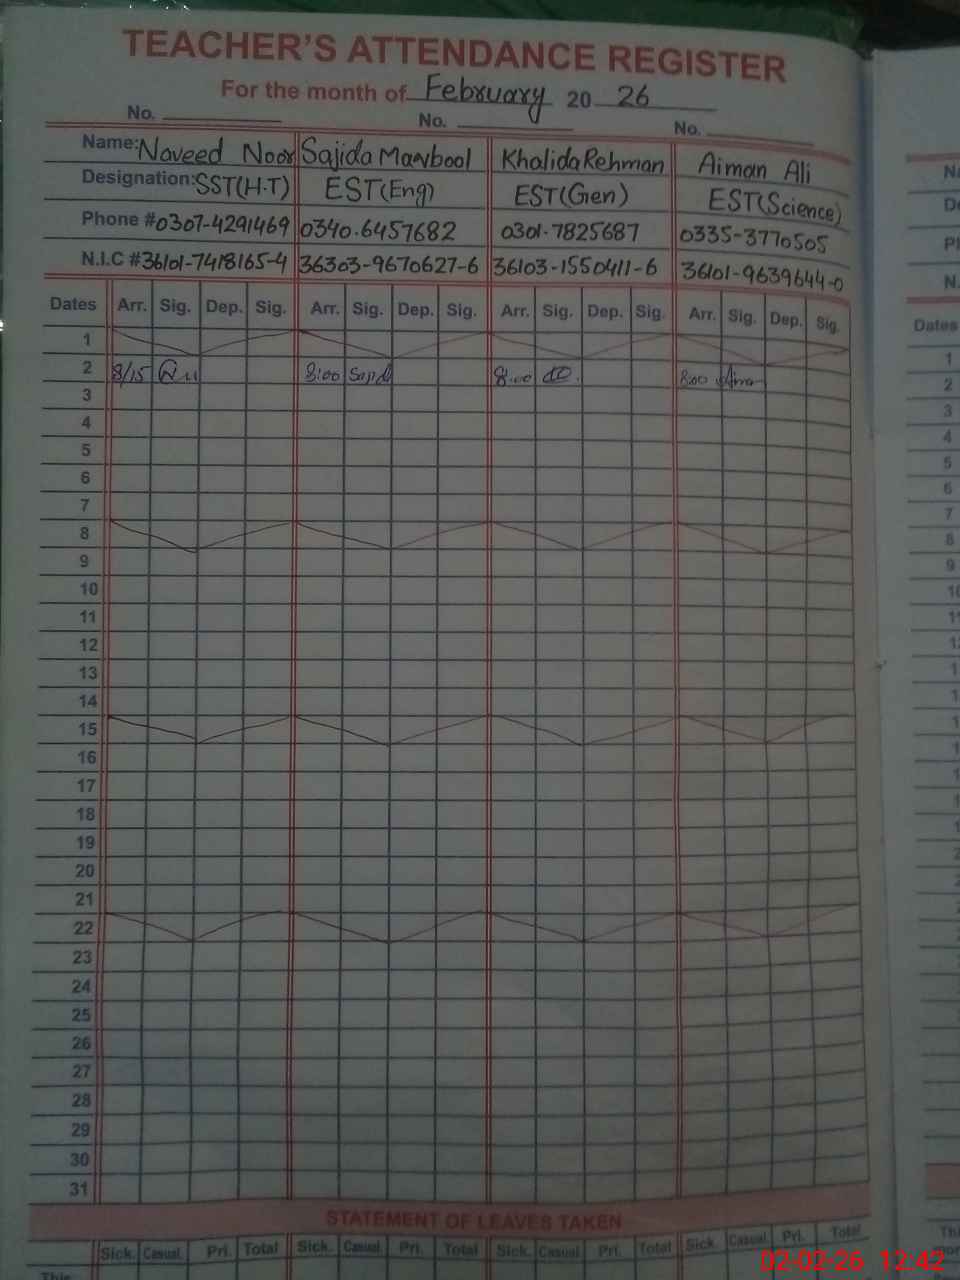 TEACHER'S ATTENDANCE REGISTER
For the month of February 2026
No. No. No.
Name: Naveed Noor Sajida Maqbool Khalida Rehman Aiman Ali
Designation: SST(H.T) EST(Eng) EST(Gen) EST(Science)
Phone # 0307-4291469 0340-6457682 0301-7825687 0335-3770505
N.I.C # 36101-7418165-4 36303-9670627-6 36103-1550411-6 36101-9639644-0
Dates Arr. Sig. Dep. Sig. Arr. Sig. Dep. Sig. Arr. Sig. Dep. Sig. Arr. Sig. Dep. Sig.
1
2 8/15 8:00 Sajid 8:00 8:00
3
4
5
6
7
8
9
10
11
12
13
14
15
16
17
18
19
20
21
22
23
24
25
26
27
28
29
30
31
STATEMENT OF LEAVES TAKEN
Sick. Casual. Pri. Total Sick. Casual. Pri. Total Sick. Casual. Pri. Total Sick. Casual. Pri. Total
This
Dates
1
2
3
4
5
6
7
8
9
10
02-02-26 12:42